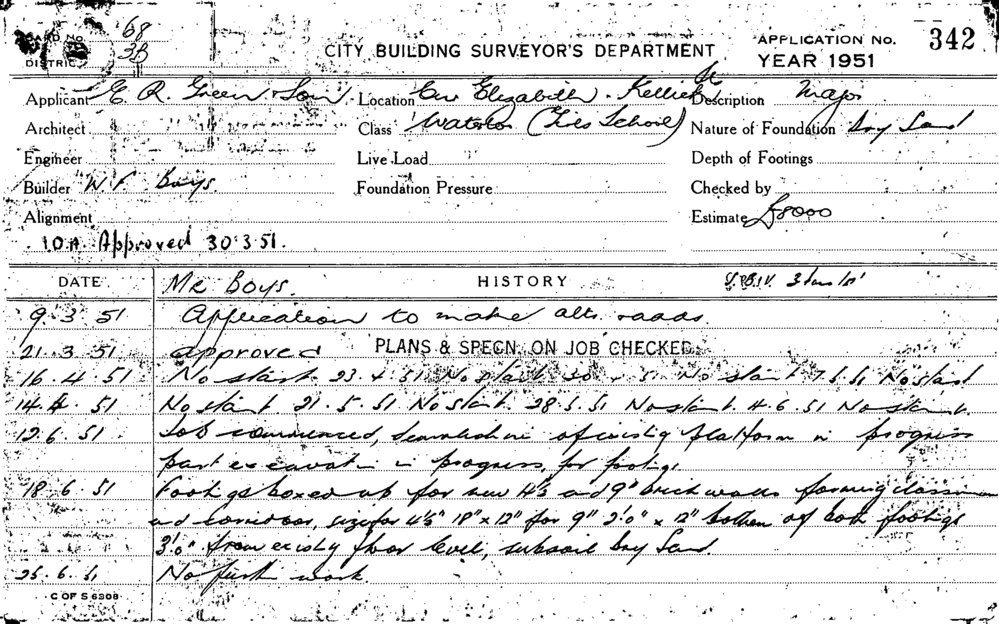 CARD No. 68
DISTRICT 3B
CITY BUILDING SURVEYOR'S DEPARTMENT
APPLICATION No. 342
YEAR 1951
Applicant E. R. Green Son Location Cnr Elizabeth - Kellick St Description Major
Architect Class Waterloo (School) Nature of Foundation Dry Sand
Engineer Live Load Depth of Footings
Builder W F Boys Foundation Pressure Checked by
Alignment Estimate £8000
Approved 30.3.51.
DATE Mr Boys. HISTORY
9.3.51 Application to make alts. & adds.
21.3.51 approved PLANS & SPECN. ON JOB CHECKED
16.4.51 No start 23.4.51 No start 30.4.51 No start 7.5.51 No start
14.5.51 No start 21.5.51 No start 28.5.51 No start 4.6.51 No start.
12.6.51 Job commenced, demolition of existing platform in progress
part excavation in progress, for footings
18.6.51 Footings boxed up for new 4½ and 9" brick walls forming classroom
and corridor, size for 4½" 18" x 12" for 9" 2'0" x 12" bottom of both footings
3'0" from existing floor level, subsoil Dry Sand.
25.6.51 No further work.
C OF S 6308